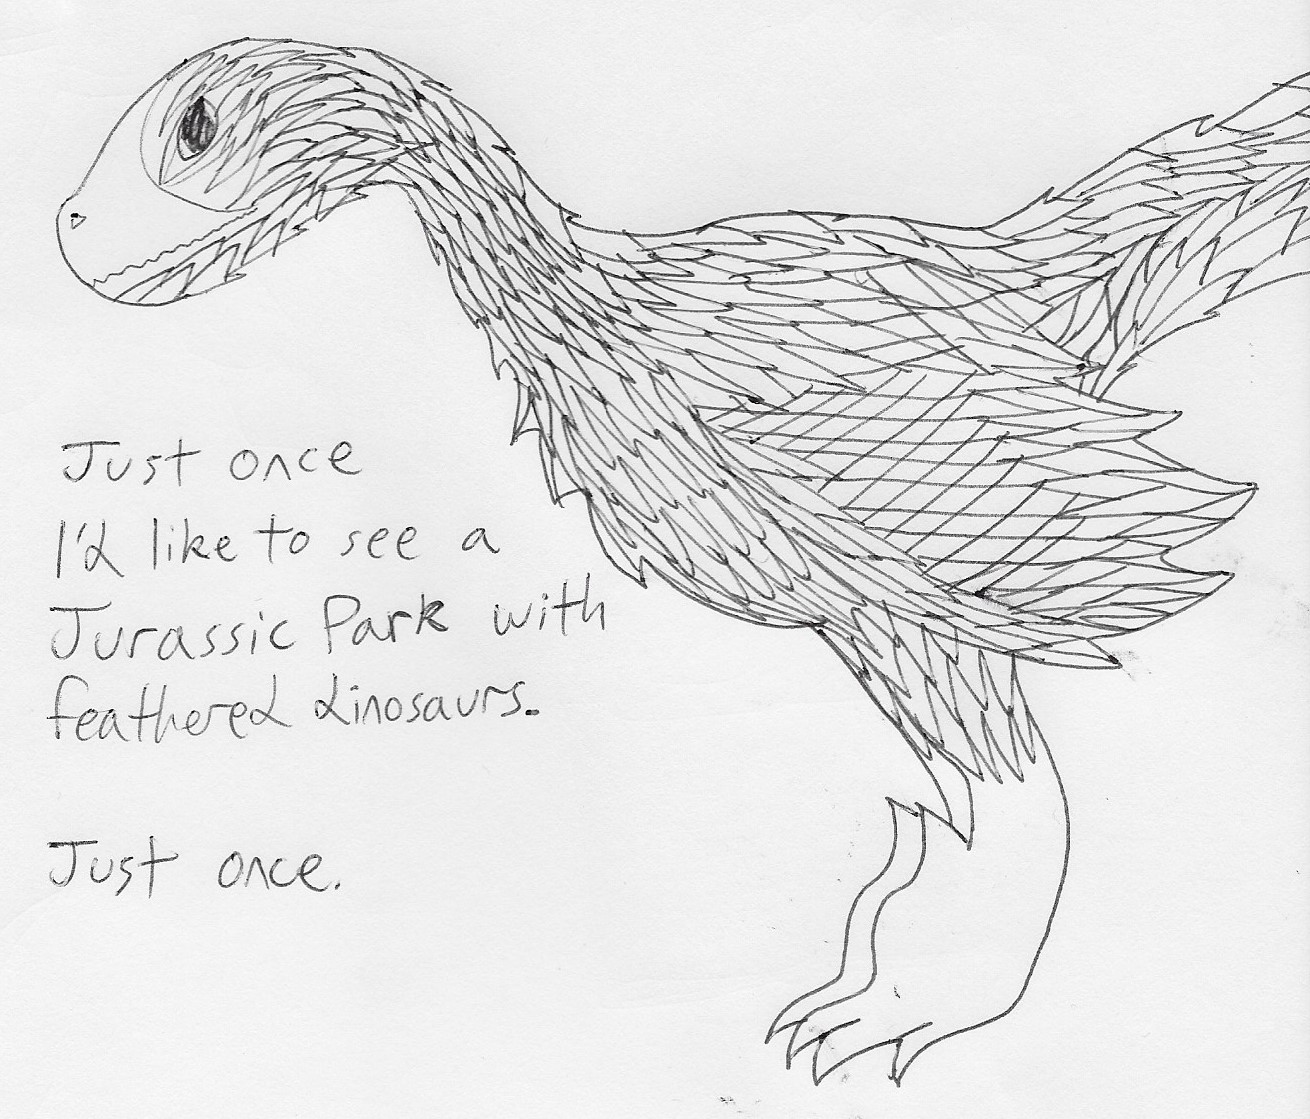 Just once
I'd like to see a
Jurassic Park with
feathered dinosaurs.
Just once.